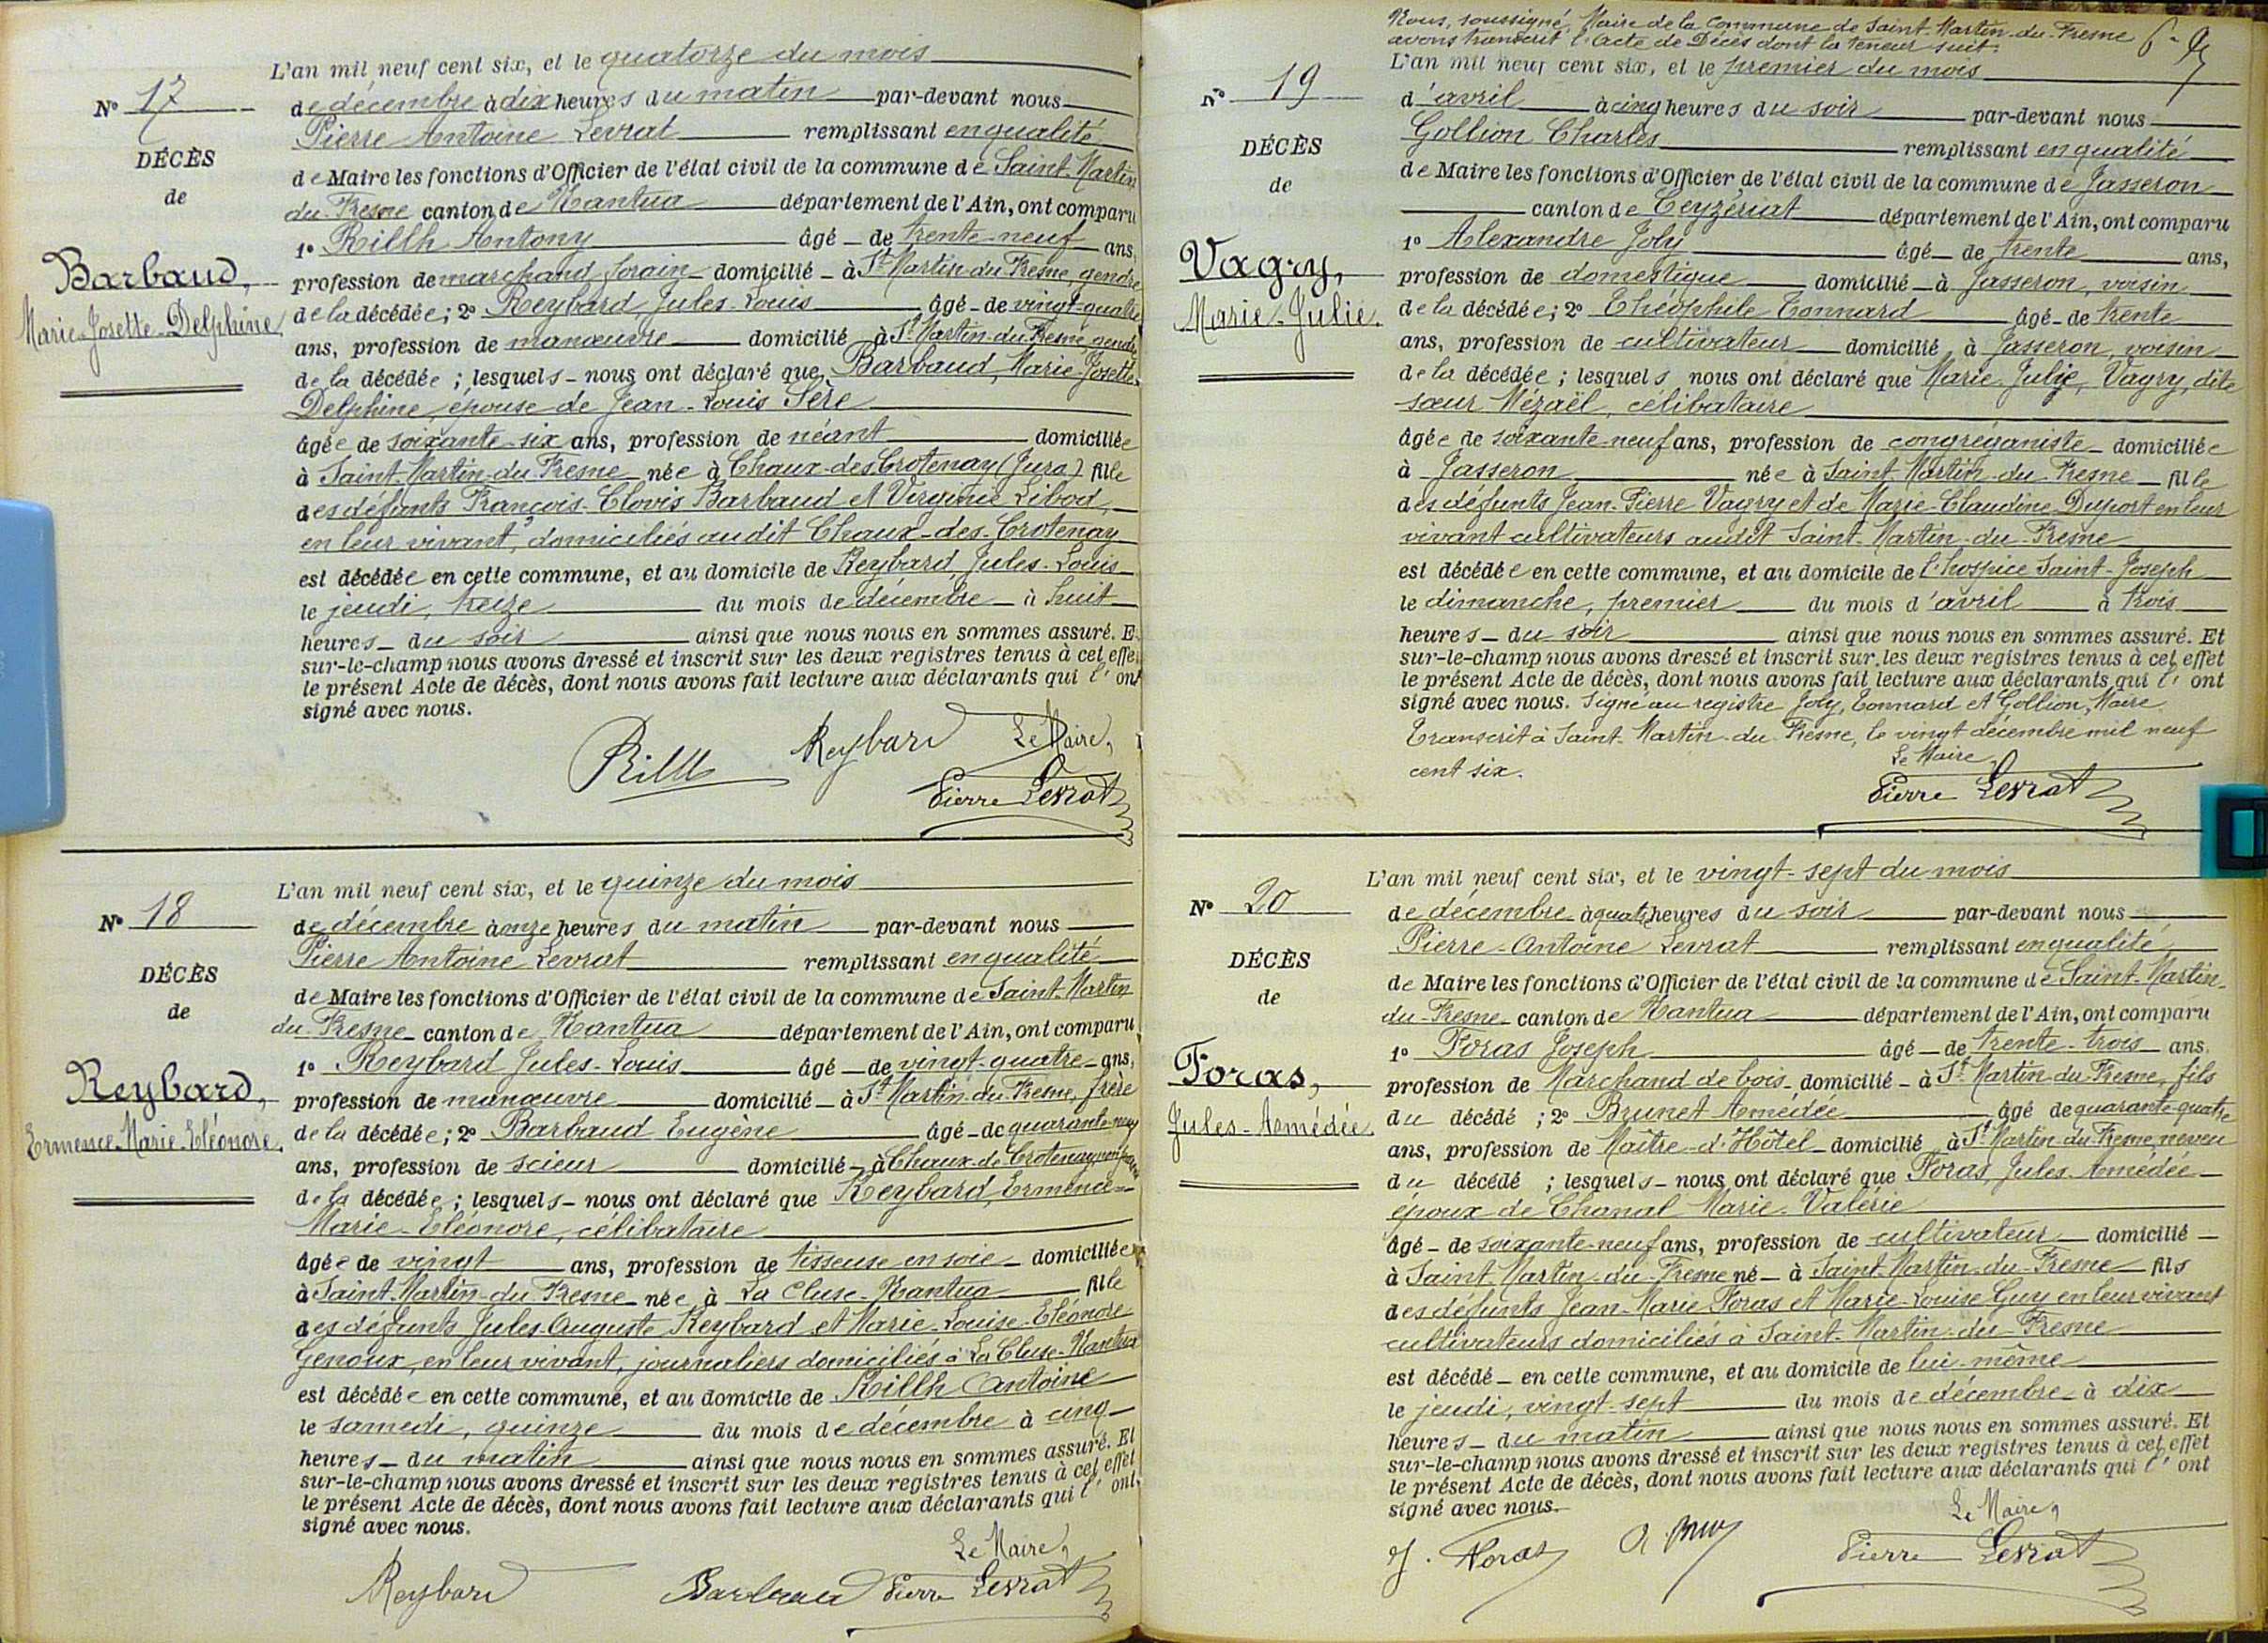 L'an mil neuf cent six, et le quatorze du mois
N° 17
de décembre à dix heures du matin par-devant nous
Pierre Antoine Levrat remplissant en qualité
DÉCÈS
de Maire les fonctions d'Officier de l'état civil de la commune de Saint-Martin
de
du-Fresne canton de Nantua département de l'Ain, ont comparu
1° Rillh Antony âgé de trente-neuf ans,
Barbaud,
profession de marchand forain domicilié à St Martin-du-Fresne, gendre
Marie-Josette-Delphine
de la décédée ; 2° Reybard, Jules-Louis âgé de vingt-quatre
ans, profession de manœuvre domicilié à St Martin-du-Fresne, gendre
de la décédée ; lesquels nous ont déclaré que Barbaud, Marie-Josette-
Delphine, épouse de Jean-Louis Sère
âgée de soixante-six ans, profession de néant domiciliée
à Saint-Martin-du-Fresne née à Chaux-des-Crotenay (Jura) fille
des défunts François-Clovis Barbaud et Virginie Libod,
en leur vivant, domiciliés audit Chaux-des-Crotenay
est décédée en cette commune, et au domicile de Reybard, Jules-Louis
le jeudi, treize du mois de décembre à huit
heures du soir ainsi que nous nous en sommes assuré. E
sur-le-champ nous avons dressé et inscrit sur les deux registres tenus à cet effet
le présent Acte de décès, dont nous avons fait lecture aux déclarants qui l'ont
signé avec nous.
Rillh Reybard Le Maire,
Pierre Levrat
L'an mil neuf cent six, et le quinze du mois
N° 18
de décembre à onze heures du matin par-devant nous
Pierre Antoine Levrat remplissant en qualité
DÉCÈS
de Maire les fonctions d'Officier de l'état civil de la commune de Saint-Martin
de
du-Fresne canton de Nantua département de l'Ain, ont comparu
1° Reybard Jules-Louis âgé de vingt-quatre ans,
Reybard,
profession de manœuvre domicilié à St Martin-du-Fresne, frère
Ermence-Marie-Eléonore.
de la décédée ; 2° Barbaud Eugène âgé de quarante-neuf
ans, profession de scieur domicilié à Chaux-de-Crotenay,
de la décédée ; lesquels nous ont déclaré que Reybard, Ermence-
Marie-Eléonore, célibataire
âgée de vingt ans, profession de tisseuse en soie domiciliée
à Saint-Martin-du-Fresne née à La Cluse-Nantua fille
des défunts Jules-Auguste Reybard et Marie-Louise-Eléonore
Genoux, en leur vivant, journaliers domiciliés à La Cluse-Nantua
est décédée en cette commune, et au domicile de Rillh Antoine
le samedi, quinze du mois de décembre à cinq
heures du matin ainsi que nous nous en sommes assuré. Et
sur-le-champ nous avons dressé et inscrit sur les deux registres tenus à cet effet
le présent Acte de décès, dont nous avons fait lecture aux déclarants qui l'ont
signé avec nous.
Le Maire,
Reybard Barbaud Pierre Levrat
Nous, soussigné, Maire de la Commune de Saint-Martin-du-Fresne
avons transcrit l'Acte de Décès dont la teneur suit :
L'an mil neuf cent six, et le premier du mois
N° 19
d'avril à cinq heures du soir par-devant nous
Gollion Charles remplissant en qualité
DÉCÈS
de Maire les fonctions d'Officier de l'état civil de la commune de Jasseron
de
canton de Ceyzériat département de l'Ain, ont comparu
1° Alexandre Joly âgé de trente ans,
Vagry,
profession de domestique domicilié à Jasseron, voisin
Marie-Julie.
de la décédée ; 2° Théophile Tonnard âgé de trente
ans, profession de cultivateur domicilié à Jasseron, voisin
de la décédée ; lesquels nous ont déclaré que Marie-Julie, Vagry, dite
sœur Mézaël, célibataire
âgée de soixante-neuf ans, profession de congréganiste domiciliée
à Jasseron née à Saint-Martin-du-Fresne fille
des défunts Jean-Pierre Vagry et de Marie-Claudine Duport en leur
vivant cultivateurs audit Saint-Martin-du-Fresne
est décédée en cette commune, et au domicile de l'hospice Saint-Joseph
le dimanche, premier du mois d'avril à trois
heures du soir ainsi que nous nous en sommes assuré. Et
sur-le-champ nous avons dressé et inscrit sur les deux registres tenus à cet effet
le présent Acte de décès, dont nous avons fait lecture aux déclarants qui l'ont
signé avec nous. Signé au registre Joly, Tonnard et Gollion, Maire
Transcrit à Saint-Martin-du-Fresne, le vingt décembre mil neuf
cent six. Le Maire,
Pierre Levrat
L'an mil neuf cent six, et le vingt-sept du mois
N° 20
de décembre à quatre heures du soir par-devant nous
Pierre-Antoine Levrat remplissant en qualité
DÉCÈS
de Maire les fonctions d'Officier de l'état civil de la commune de Saint-Martin-
de
du-Fresne canton de Nantua département de l'Ain, ont comparu
1° Foras Joseph âgé de trente-trois ans,
Foras,
profession de Marchand de bois domicilié à St Martin-du-Fresne, fils
Jules-Amédée.
du décédé ; 2° Brunet Amédée âgé de quarante-quatre
ans, profession de Maître-d'Hôtel domicilié à St Martin-du-Fresne, neveu
du décédé ; lesquels nous ont déclaré que Foras, Jules-Amédée
époux de Chanal Marie-Valérie
âgé de soixante-neuf ans, profession de cultivateur domicilié
à Saint-Martin-du-Fresne né à Saint-Martin-du-Fresne fils
des défunts Jean-Marie Foras et Marie-Louise Guy en leur vivant
cultivateurs domiciliés à Saint-Martin-du-Fresne
est décédé en cette commune, et au domicile de lui-même
le jeudi, vingt-sept du mois de décembre à dix
heures du matin ainsi que nous nous en sommes assuré. Et
sur-le-champ nous avons dressé et inscrit sur les deux registres tenus à cet effet
le présent Acte de décès, dont nous avons fait lecture aux déclarants qui l'ont
signé avec nous.
Le Maire,
J. Foras Pierre Levrat